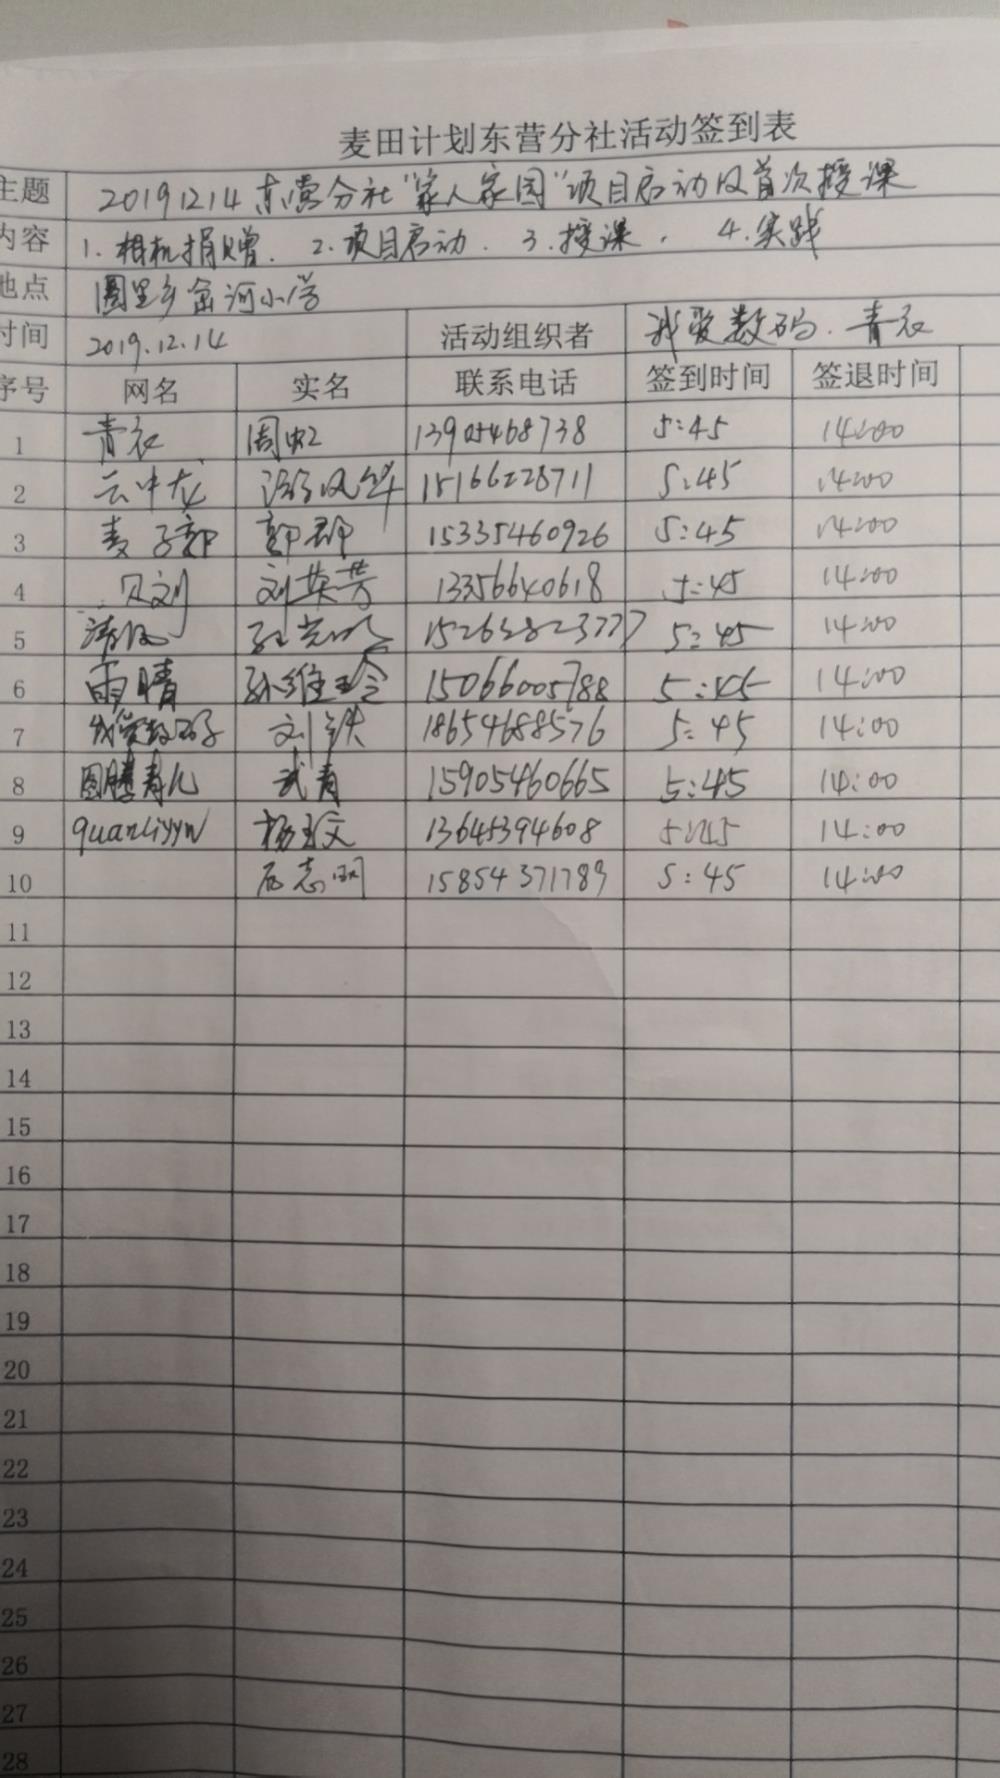 麦田计划东营分社活动签到表
主题 20191214东营分社"家人家园"项目启动及首次授课
内容 1.相机捐赠. 2.项目启动. 3.授课. 4.实践
地点 圈里乡 河小学
时间 2019.12.14 活动组织者 我爱数码.青衣
序号 网名 实名 联系电话 签到时间 签退时间
1 青衣 周虹 13905468738 5:45 14:00
2 云中龙 风华 15166228711 5:45 14:00
3 麦子郭 郭群 15335460926 5:45 14:00
4 贝刘 刘英芳 13356640618 5:45 14:00
5 15263823777 5:45 14:00
6 雨晴 孙维玲 15066005788 5:45 14:00
7 我爱数码 刘铁 18654688576 5:45 14:00
8 图腾青儿 武青 15905460665 5:45 14:00
9 quanliyyw 杨玉文 13645394608 5:45 14:00
10 志明 15854371789 5:45 14:00
11
12
13
14
15
16
17
18
19
20
21
22
23
24
25
26
27
28